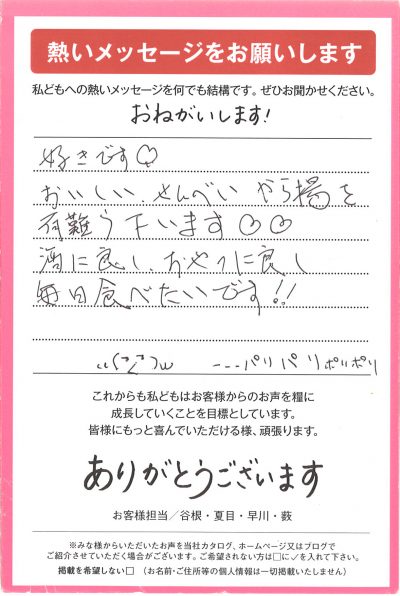 熱いメッセージをお願いします
私どもへの熱いメッセージを何でも結構です。ぜひお聞かせください。
おねがいします!
好きです♡
おいしい、せんべい から揚を
有難う下います♡♡
酒に良し、おやつに良し
毎日食べたいです!!
---パリパリポリポリ
これからも私どもはお客様からのお声を糧に
成長していくことを目標としています。
皆様にもっと喜んでいただける様、頑張ります。
ありがとうございます
お客様担当／谷根・夏目・早川・薮
※みな様からいただいたお声を当社カタログ、ホームページ又はブログで
ご紹介させていただく場合がございます。ご希望されない方は□に✓を入れて下さい。
掲載を希望しない□ （お名前・ご住所等の個人情報は一切掲載いたしません）